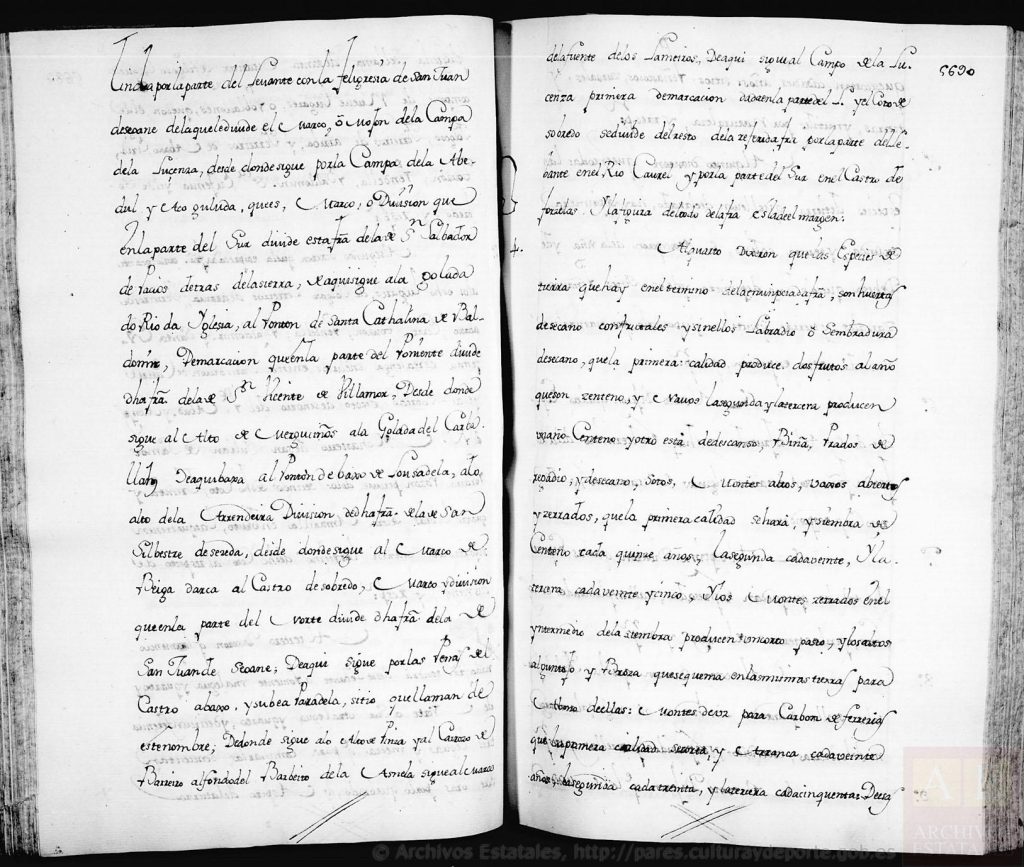 Linda por la parte del Levante con la feligresia de San Juan
de seoane dela que le divide el Marco, ò Mojon dela Campa
dela Lucenza, desde donde sigue por la Campa dela Abe-
dul y Alto que es, Marco, ò Division que
en la parte del Sur divide esta fra. dela de Sn. Salbador
de Pacios detras dela sierra, de aqui sigue ala golada
do Rio da Yglesia, al Ponton de Santa Cathalina de Bal-
domir, Demarcacion que en la parte del Poniente divide
dha fra. dela de Sn. Vicente de Villamor, Desde donde
sigue al Alto de Merguiños ala Golada del Carba
De aqui baxa al Ponton de baxo de Lousadela, alo
alto dela Arrendeira Division de dha fra. dela de San
Silbestre de sereda, desde donde sigue al Marco de
Beiga darca al Castro de sobredo, Marco y division
que en la parte del Norte divide dha fra. dela de
San Juan de Seoane; De aqui sigue por las Penas del
Castro abaxo, y sube a Paradela, sitio que llaman de
este nombre; De donde sigue alo Alto de y al de
Barreiro al fondo del Barbeito de la Amela sigue al Marco
dela fuente delos Lameiros, De aqui sigue al Campo dela Lu-
5690
cenza primera demarcacion dada en la parte del L. y el Coto de
sobredo se divide del resto dela referida fra. por la parte del Le-
bante en el Rio Caurel y por la parte del Sur en el Castro de
Y la figura de todo dela fra. es la del margen:
4.
A la quarta Dixeron que las Especies de
tierra que hay en el termino dela enunpeciada fra., son huertas
de secano con frutales y sin ellos Labradio ò Sembradura
de secano, que la primera calidad produce dos frutos al año
que son zenteno, y Navos la segunda y la tercera producen
un año Centeno y otro està de descanso, Viña, Prados de
regadio, y de secano, Sotos, Montes altos, vaxos abiertos
y zerrados, que la primera calidad se hara, y siembra de
Centeno cada quinze años, la segunda cada veinte, Y la
terzera cada veinte y cinco, Y los Montes zerrados en el
yntermedio dela siembra producen un corto pasto, y los altos
algun tojo y Broza que se quema en las mismas tierras para
Abono de ellas: Montes de para Carbon de ferrerias
que la primera calidad se corta, y Arranca cada veinte
años, la segunda cada treinta, y la terzera cada cinquenta: Desas
© Archivos Estatales, http://pares.culturaydeporte.gob.es
ARCHIVOS
ESTATALES